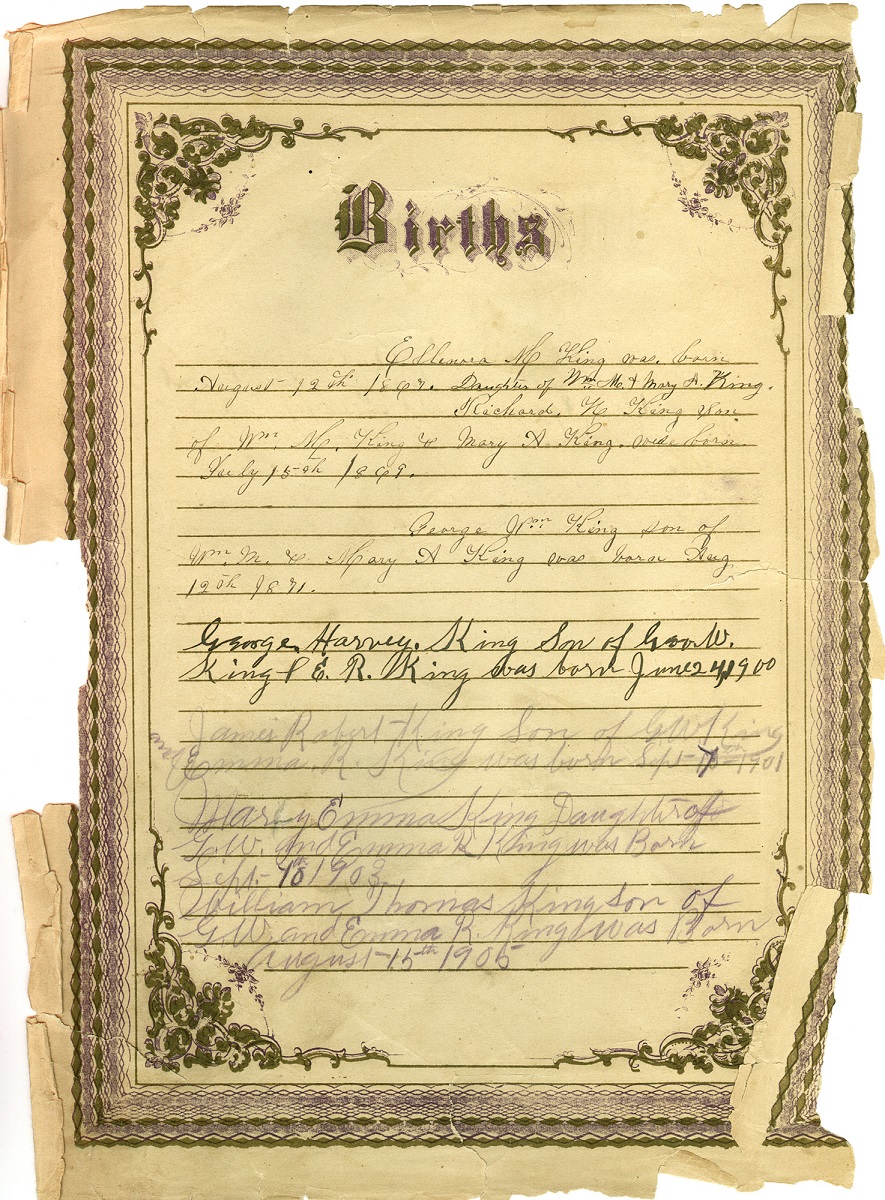 Births
Ellenora M King was. born
August 12th 1867. Daughter of Wm. M. & Mary A. King.
Richard. H King Son
of Wm. M. King & Mary A King. was born
July 15th 1869.
George Wm King son of
Wm. M. & Mary A King was born Aug
12th 1871.
George Harvey. King Son of Geo. W.
King & E. R. King was born June 24, 1900
James Robert King Son of G W King
and Emma. R. King was born Sept 1901
Mary Emma King Daughter of
G. W. and Emma R King was Born
Sept. 1903
William Thomas King son of
G. W. and Emma R. King was Born
August 15th 1905